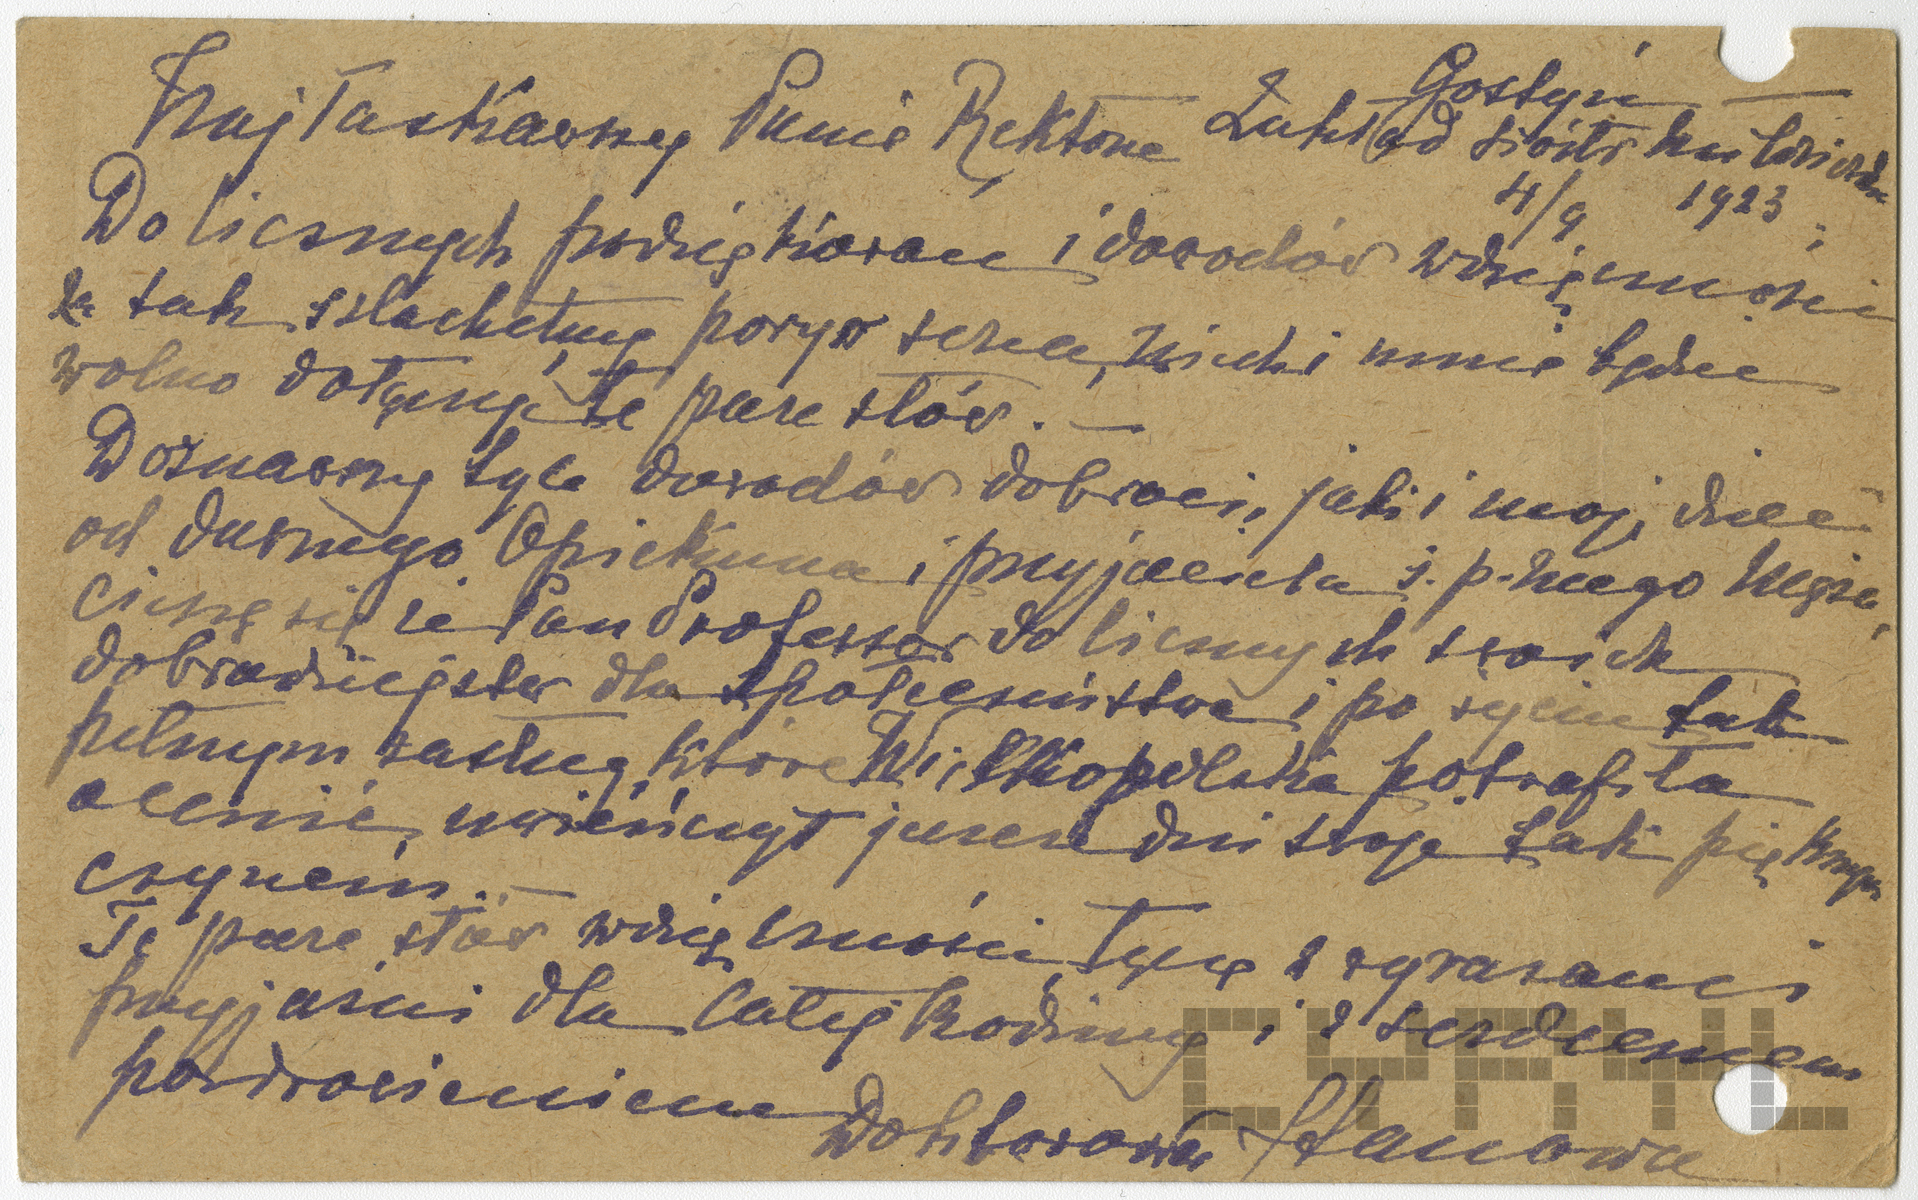 Gostyń
Najłaskawszy Panie Rektorze Zakład sióstr
4/9. 1923
Do licznych podziękowań i dowodów wdzięczności
za tak szlachetny poryw serca, niech i mnie będzie
wolno dołączyć te parę słów. —
Doznawszy tyle dowodów dobroci, jak i moje dzieci
od dawnego Opiekuna i przyjaciela ś. p. mego Męża,
cieszę się że Pan Profesor do licznych swoich
dobrodziejstw dla społeczeństwa i po życiu tak
pełnym zasług, które Wielkopolska potrafiła
ocenić, uwieńczył jeszcze dni swoje tak pięknym
czynem. —
Te parę słów wdzięczności łączę z wyrazami
przyjaźni dla całej Rodziny i z serdecznem
pozdrowieniem
Doktorowa
CYRYL